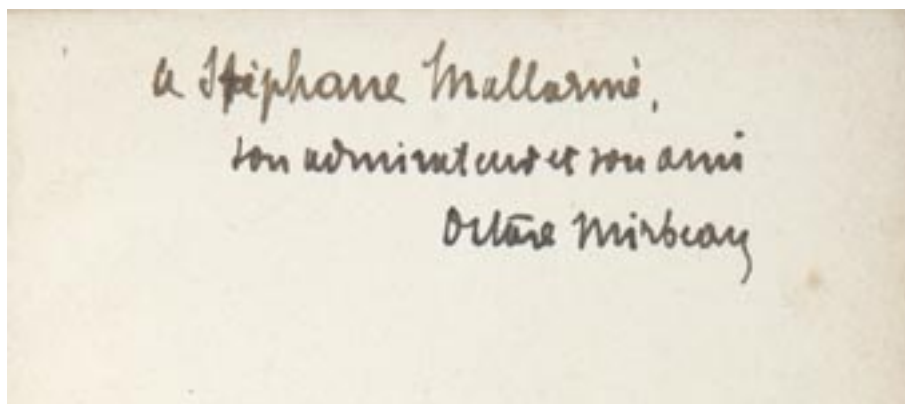 à Stéphane Mallarmé,
son admirateur et son ami
Octave Mirbeau